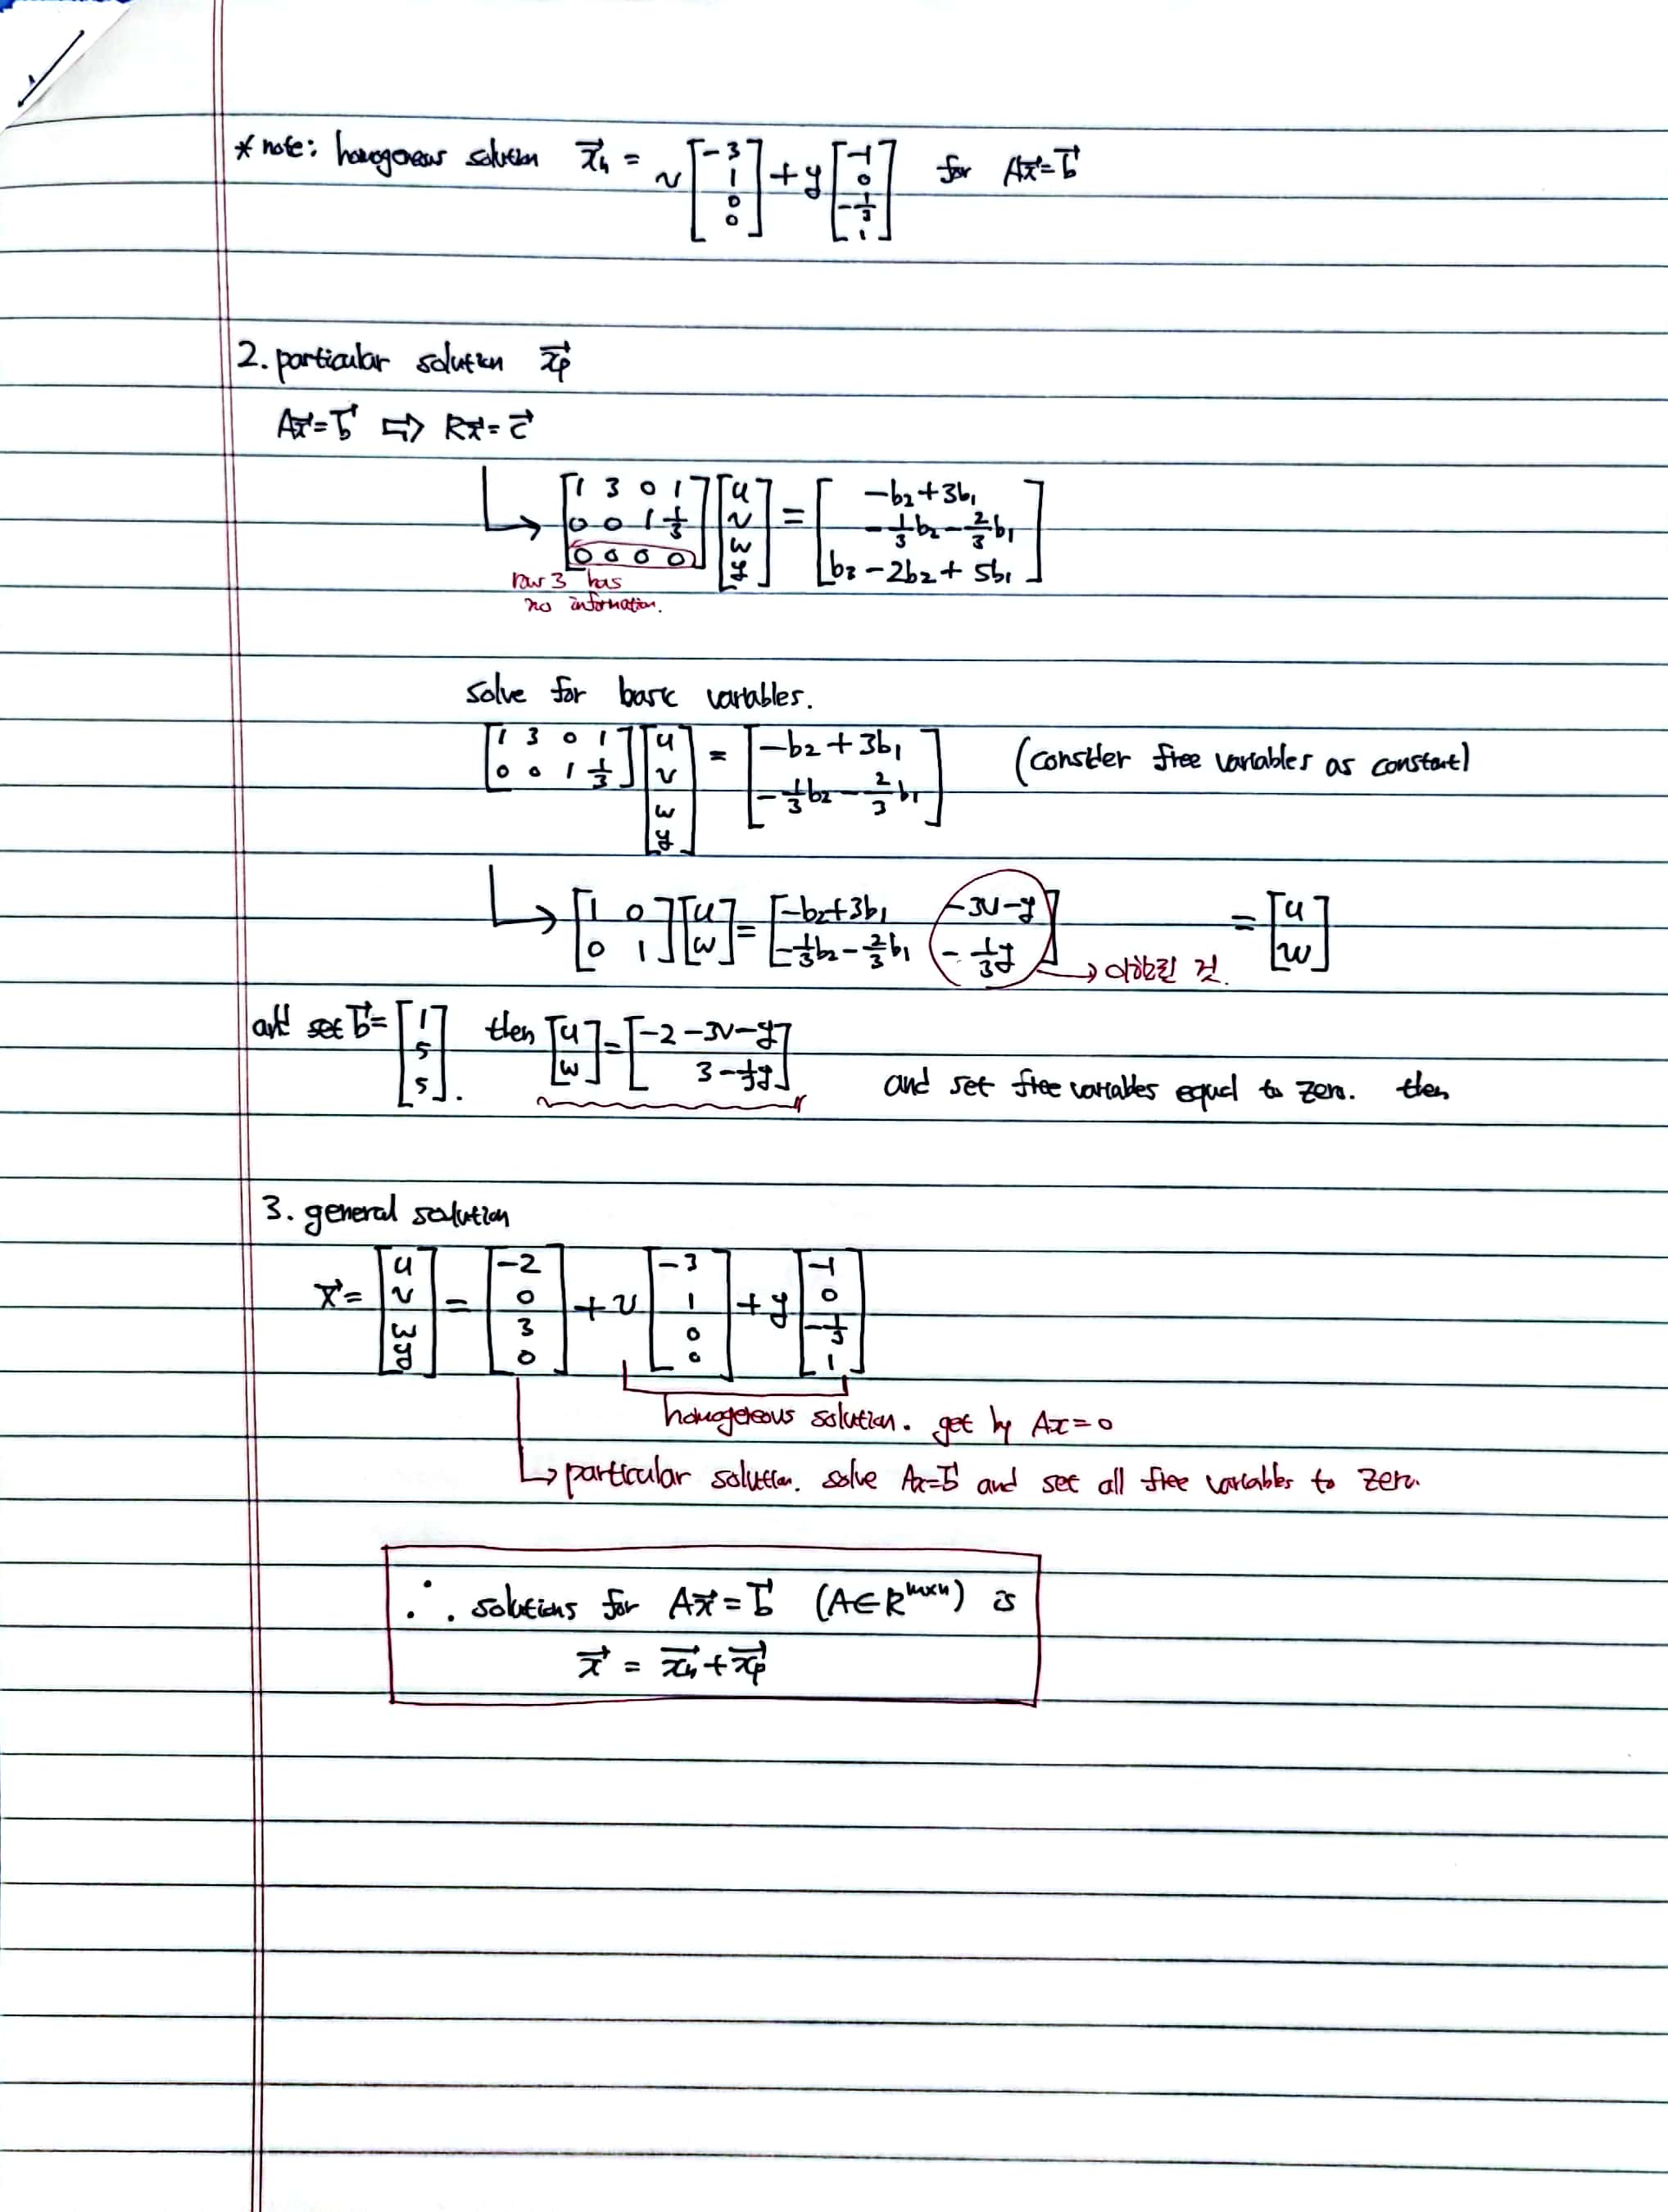 * note: homogeneous solution x⃗h = v[-3 1 0 0] + y[-1 0 -1/3 1] for Ax⃗=b⃗
2. particular solution x⃗p
Ax⃗=b⃗ ⇨ Rx⃗=c⃗
[1 3 0 1; 0 0 1 1/3; 0 0 0 0][u v w y] = [-b₂+3b₁; -1/3b₂-2/3b₁; b₃-2b₂+5b₁]
row 3 has
no information.
solve for basic variables.
[1 3 0 1; 0 0 1 1/3][u v w y] = [-b₂+3b₁; -1/3b₂-2/3b₁] (consider free variables as constant)
[1 0; 0 1][u w] = [-b₂+3b₁ -3v-y; -1/3b₂-2/3b₁ -1/3y] = [u w]
→ 이항된 것.
and set b⃗=[1 5 5]. then [u w]=[-2-3v-y; 3-1/3y] and set free variables equal to zero. then
3. general solution
x⃗=[u v w y]=[-2 0 3 0]+v[-3 1 0 0]+y[-1 0 -1/3 1]
homogeneous solution. get by Ax=0
→ particular solution. solve Ax=b⃗ and set all free variables to zero.
∴ solutions for Ax⃗=b⃗ (A∈Rᵐˣⁿ) is
x⃗ = x⃗h+x⃗p